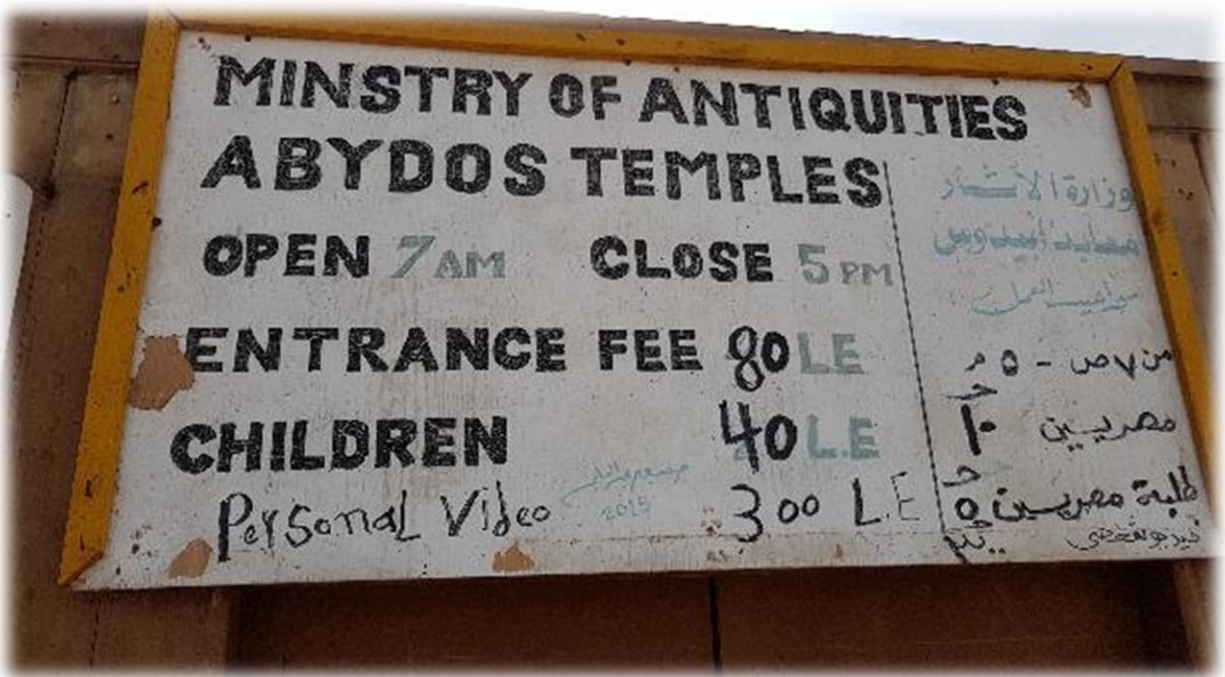 MINSTRY OF ANTIQUITIES
ABYDOS TEMPLES
OPEN 7 AM CLOSE 5 PM
ENTRANCE FEE 80 LE
CHILDREN 40 L.E
Personal Video 300 L.E
2015
وزارة الآثار
معابد أبيدوس
مواعيد العمل
من ٧ ص - ٥ م
مصريين ١٠ ج
طلبة مصريين ٥ ج